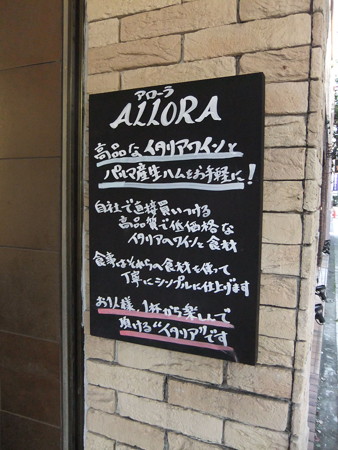 アローラ
ALLORA
高品なイタリアワインと
パルマ産生ハムをお手軽に!
自社で直接買いつける
高品質で低価格な
イタリアのワインと食材
食事もそれらの食材を使って
丁寧にシンプルに仕上げます
お1人様、1杯から楽しんで
頂ける"イタリア"です